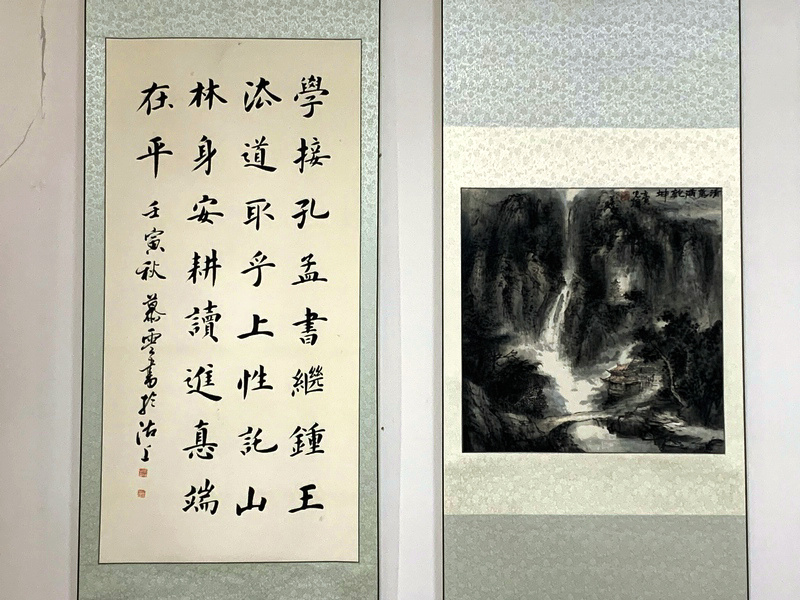 學接孔孟書繼鍾王
法道取乎上性託山
林身安耕讀進惪端
在平 壬寅秋 慕雲書於沽上
清氣滿乾坤